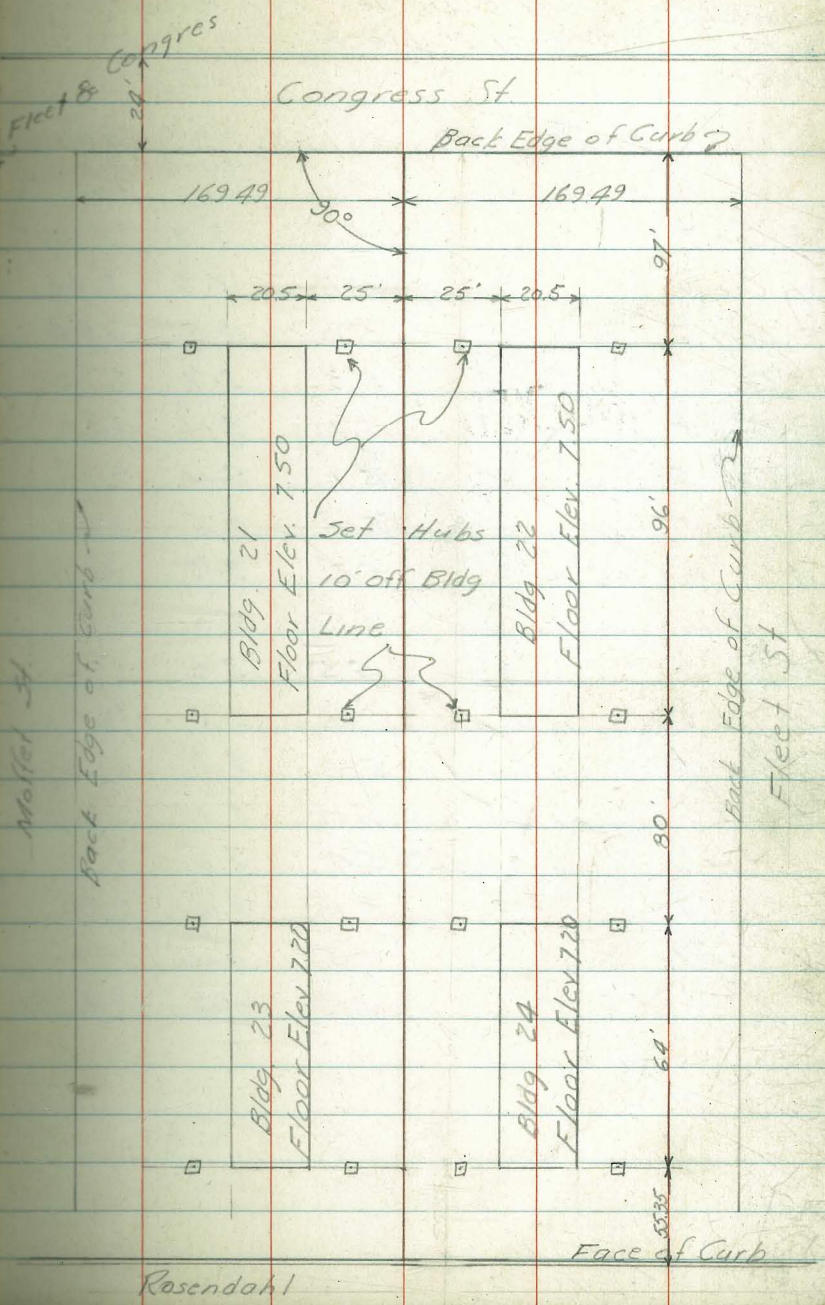 Fleet & Congres
24'
Congress St
Back Edge of Curb
169.49
169.49
90°
97'
20.5
25'
25'
20.5
Bldg. 21
Floor Elev. 7.50
Set Hubs
10' off Bldg
Line
Bldg 22
Floor Elev. 7.50
96'
Back Edge of Curb
Fleet St
Moffet St.
Back Edge of Curb
80'
Bldg 23
Floor Elev 7.20
Bldg 24
Floor Elev 7.20
64'
55.35
Face of Curb
Rosendahl